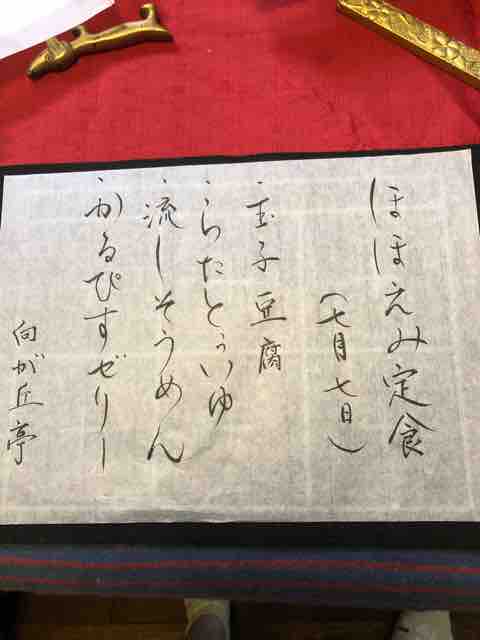 ほほえみ定食
(七月七日)
・玉子豆腐
・らたとぅいゆ
・流しそうめん
・かるぴすゼリー
向が丘亭